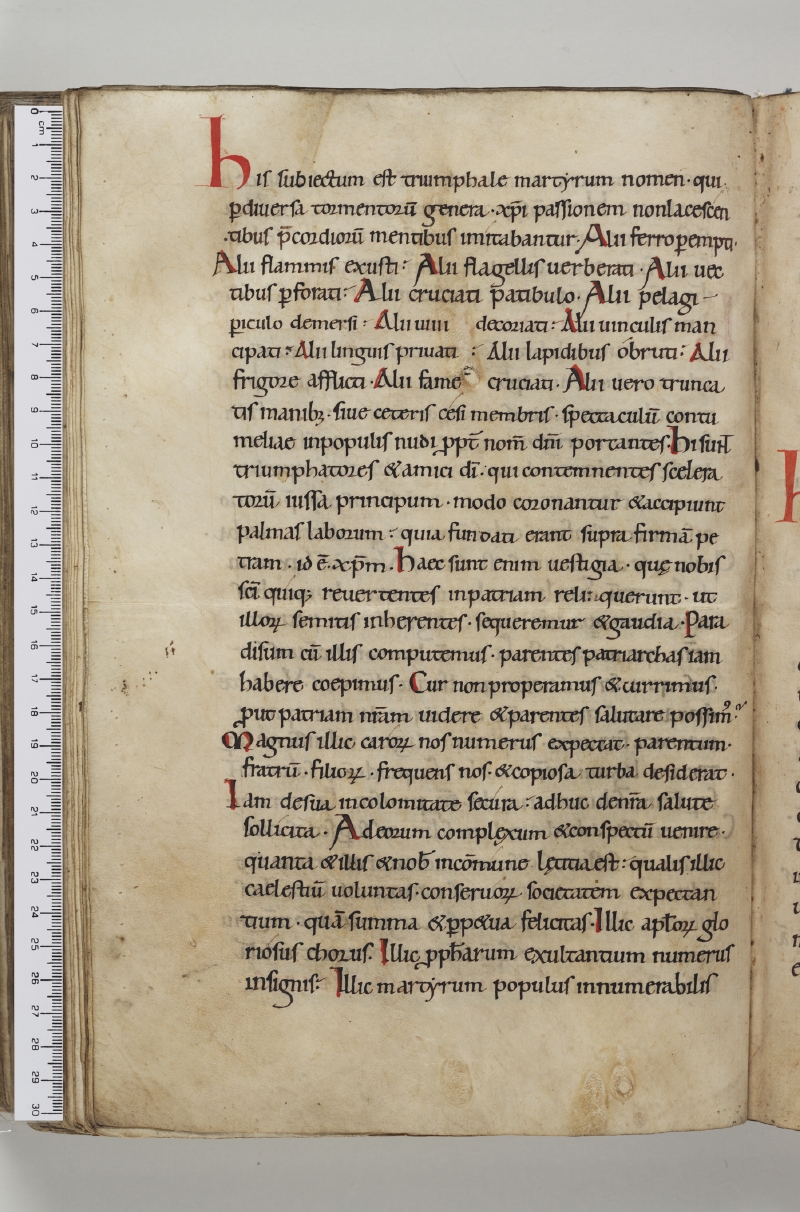 his subiectum est triumphale martyrum nomen · qui
p̄diuersa tormentorū genera · xp̄i passionem nonlacescen
tibus p̄cordiorū mentibus imitabantur · Alii ferro pempti ·
Alii flammis exusti : Alii flagellis uerberati · Alii uec
tibus p̄forati : Alii cruciati patibulo · Alii pelagi
piculo demersi : Alii uiui decoriati : Alii uinculis man
cipati : Alii linguis priuati : Alii lapidibus obruti : Alii
frigore afflicti · Alii fame cruciati · Alii uero trunca
tis manib; · siue ceteris cesi membris · spectaculū contu
meliae inpopulis nudi ꝓpt̄ nom̄ dn̄i portantes · hi sunt
triumphatores & amici dī · qui contemnentes scelera
torū iussa principum · modo coronantur & accipiunt
palmas laborum : quia fundati erant supra firmā pe
tram · id ē · xp̄m · haec sunt enim uestigia · quę nobis
sc̄i quiq; reuertentes inpatriam reliquerunt · ut
illoꝝ semitis inherentes · sequeremur & gaudia · Para
disum cū illis computemus · parentes patriarchas iam
habere coepimus · Cur non properamus & currimus ·
ꝓut patriam nr̄am uidere & parentes salutare possim᷒ :
Magnus illic caroꝝ nos numerus expectat · parentum ·
fratrū · filioꝝ · frequens nos · & copiosa turba desiderat ·
Iam desua incolomitate secura : adhuc denr̄a salute
sollicita · Adeorum complexum & conspectū uenire ·
quanta & illis & nob̄ incōmune lętitia est : qualis illic
caelestiū uoluntas · conseruoꝝ societatem expectan
tium · quā summa & ꝑp&ua felicitas · Illic apl̄oꝝ glo
riosus chorus · Illic ꝓph̄arum exultantium numerus
insignis : Illic martyrum populus innumerabilis